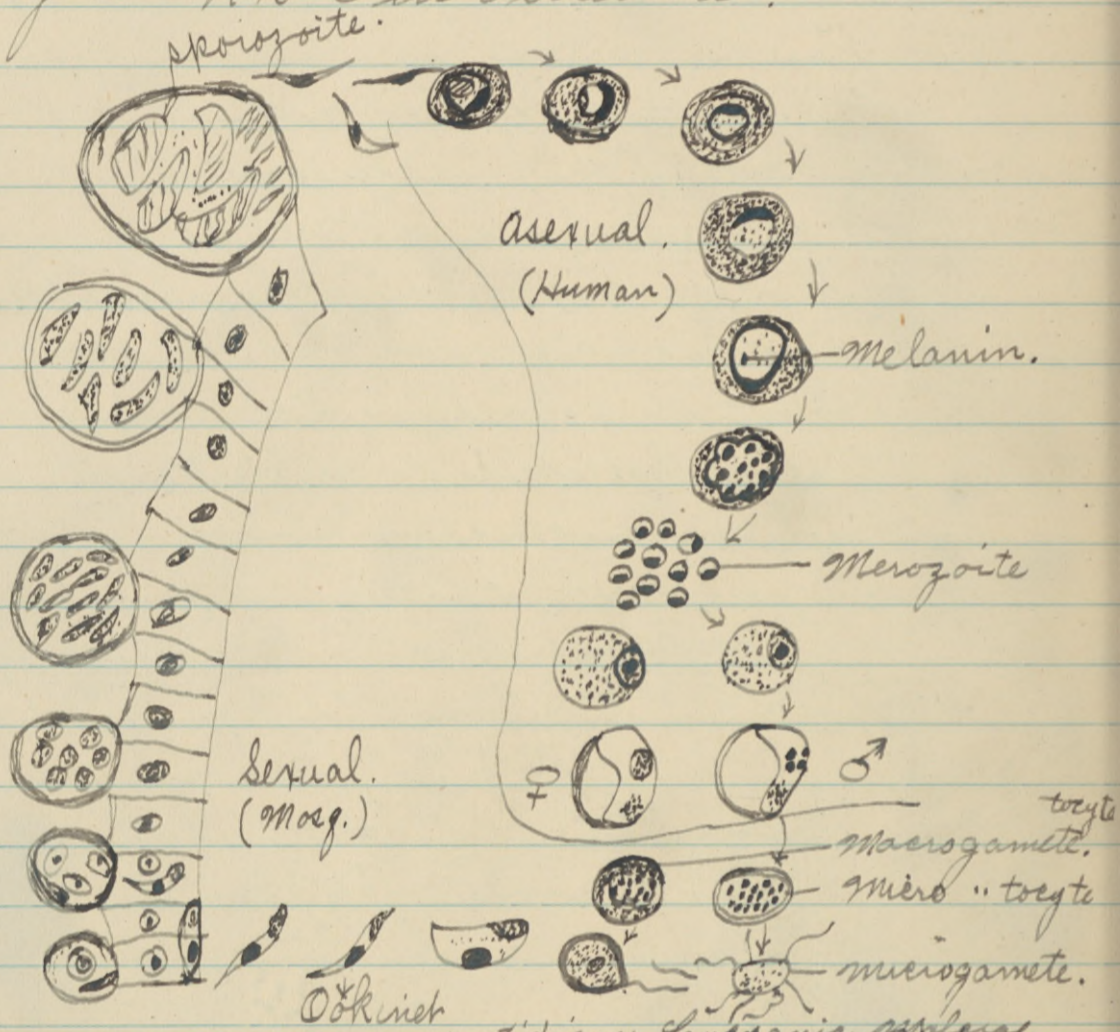 sporozoite.
asexual.
(Human)
Melanin.
Merozoite
Sexual.
(Mosq.)
♀
♂
tocyte
Macrogamete.
Micro " tocyte
microgamete.
Oökinet